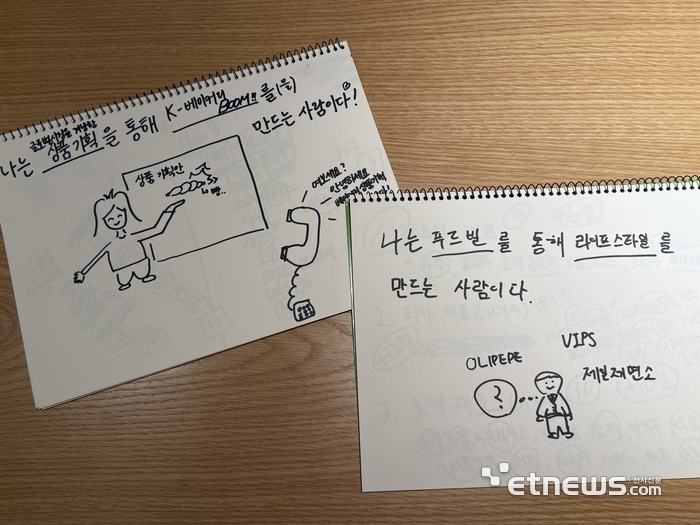 글로벌시장을 겨냥한
나는 상품기획을 통해 K-베이커리 BOOM!!를(을)
만드는 사람이다!
상품 기획안
여보세요?
안녕하세요
나는 푸드빌 를 통해 라이프스타일 를
만드는 사람이다.
OLIPEPE
VIPS
?
제일제면소
etnews.com
전자신문